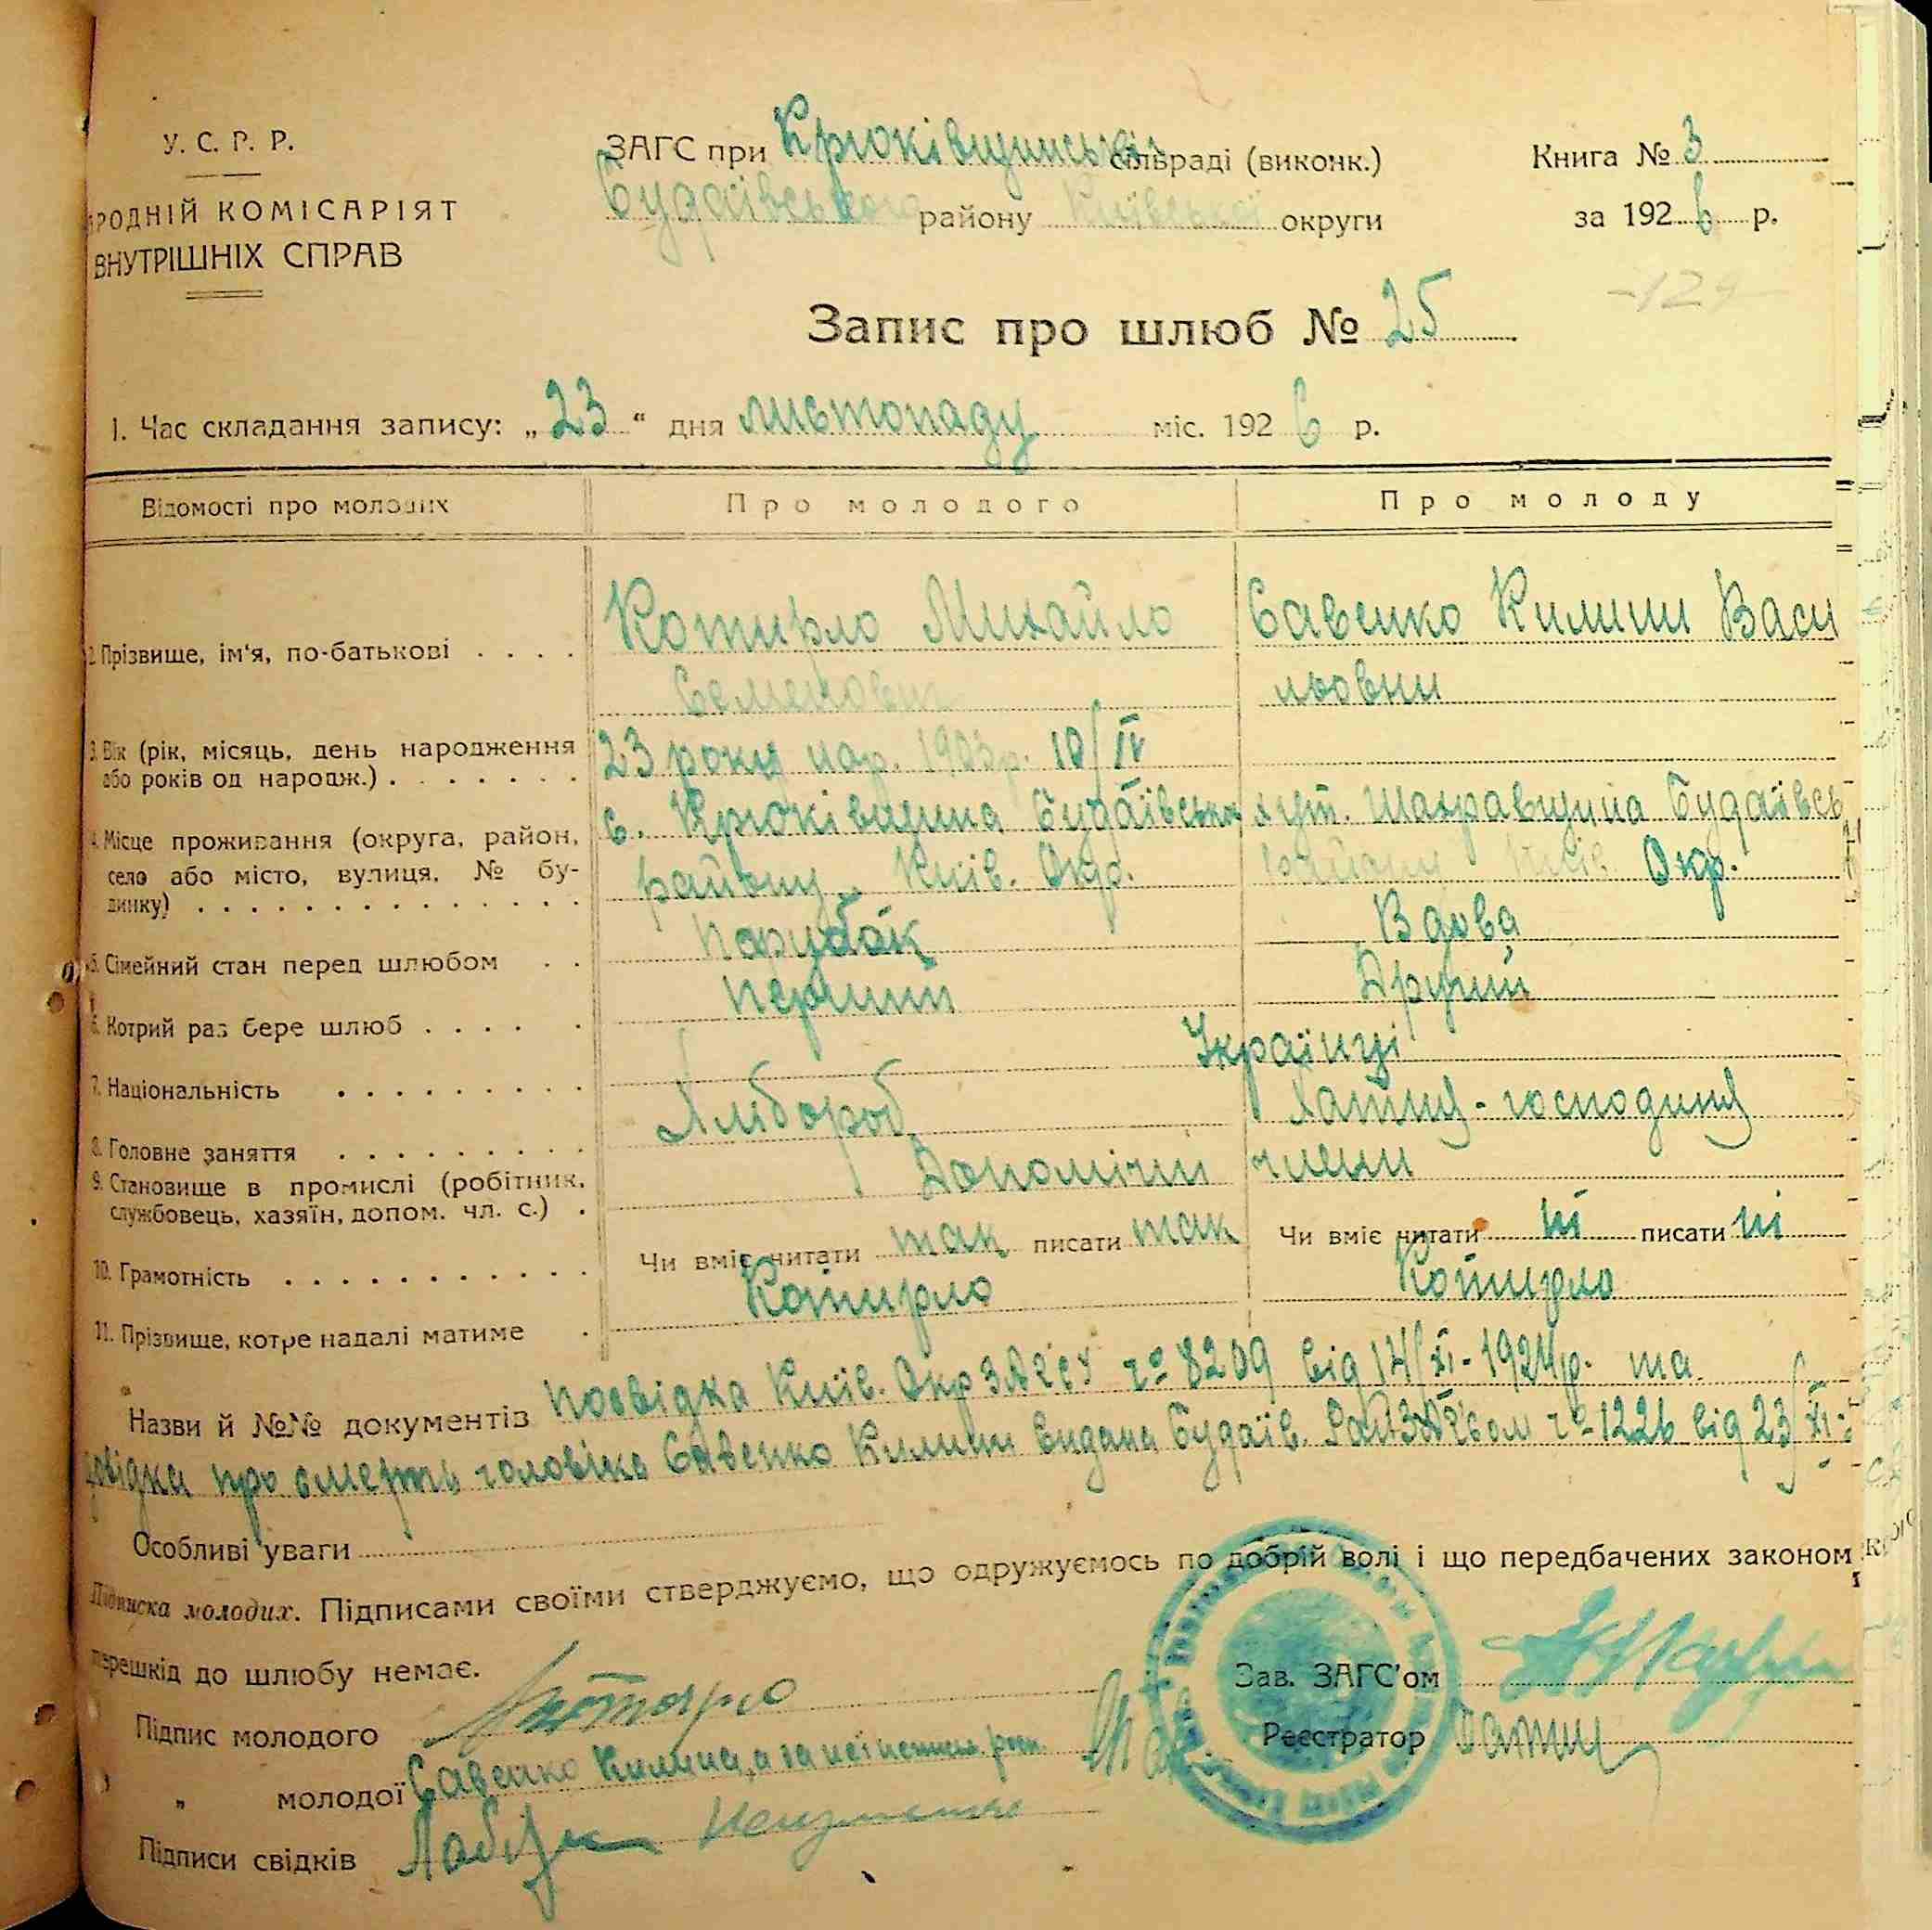 У. С. Р. Р.
РОДНІЙ КОМІСАРІЯТ
ВНУТРІШНІХ СПРАВ
ЗАГС при Крюківщинській сільраді (виконк.)
Будаївського району Київської округи
Книга № 3
за 1926 р.
-124-
Запис про шлюб № 25
1. Час складання запису: „23“ дня листопаду міс. 1926 р.
Відомості про молодих Про молодого Про молоду
2. Прізвище, ім'я, по-батькові . . . . Котирло Михайло Савенко Килини Васи
Семенович льовни
3. Вік (рік, місяць, день народження 23 року нар. 1903р. 10/IV
або років од народж.) . . . . . . .
с. Крюківщина Будаївськ хут. Шахравщина Будаївсь
4. Місце проживання (округа, район, району Київ. Окр. району Київ Окр.
село або місто, вулиця, № бу-
динку) . . . . . . . . . . . . . .
5. Сімейний стан перед шлюбом . . Парубок Вдова
6. Котрий раз бере шлюб . . . . . Перший Другий
7. Національність . . . . . . . . . Українці
8. Головне заняття . . . . . . . . . Хлібороб Хатня-господиня
9. Становище в промислі (робітник, Допомічні члени
службовець, хазяїн, допом. чл. с.) .
10. Грамотність . . . . . . . . . . . Чи вміє читати так писати так Чи вміє читати ні писати ні
11. Прізвище, котре надалі матиме . Котирло Котирло
Назви й №№ документів Посвідка Київ. Окр ЗАГСу ч° 8209 від 14/XI-1924р. та
довідка про смерть чоловіка Савенко Килини видана Будаїв. РайЗАГсом ч°-1226 від 23/XI-
Особливі уваги
Підписка молодих. Підписами своїми стверджуємо, що одружуємось по добрій волі і що передбачених законом
перешкід до шлюбу немає.
Зав. ЗАГС'ом
Підпис молодого Котирло
Реєстратор
„ молодої Савенко Килина, а за неї неписьм. розп.
Підписи свідків